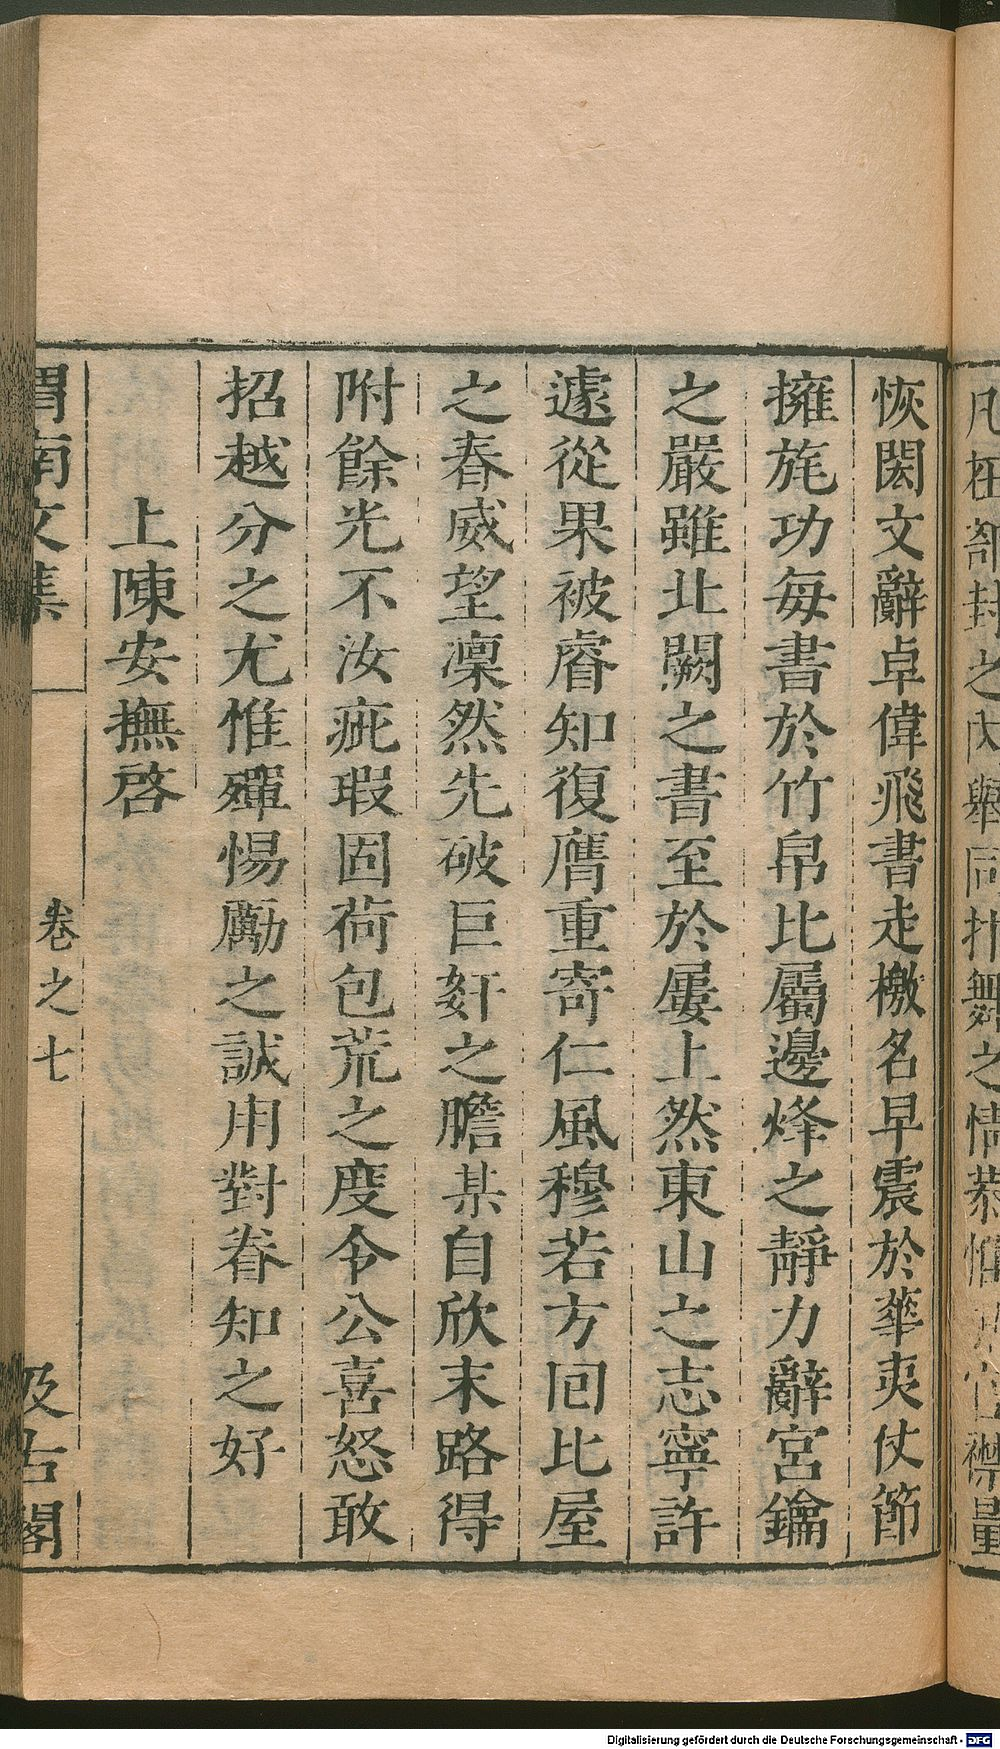 凡在
封之內舉同抃舞之情恭惟
襟量
恢閎文辭卓偉飛書走檄名早震於華夷仗節
擁旄功每書於竹帛比屬邊烽之靜力辭宮鑰
之嚴雖北闕之書至於屢上然東山之志寧許
遽從果被睿知復膺重寄仁風穆若方回比屋
之春威望凜然先破巨奸之膽某自欣末路得
附餘光不汝疵瑕固荷包荒之度令公喜怒敢
招越分之尤惟殫惕勵之誠用對眷知之好
上陳安撫啓
渭南文集
卷之七
汲古閣
Digitalisierung gefördert durch die Deutsche Forschungsgemeinschaft - DFG